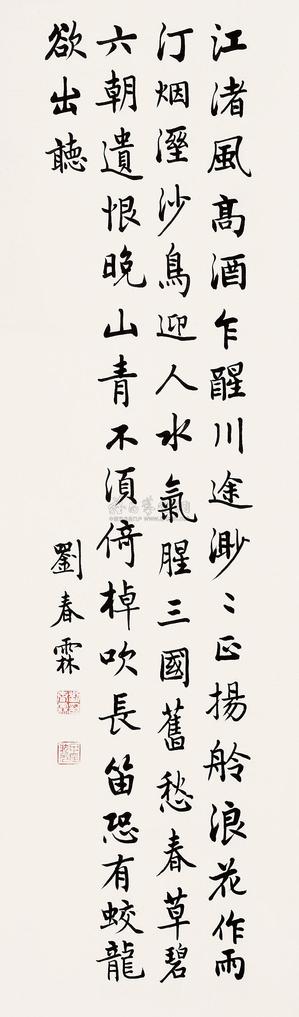 江渚風高酒乍醒川途渺〻正揚舲浪花作雨
汀烟溼沙鳥迎人水氣腥三國舊愁春草碧
六朝遺恨晚山青不須倚棹吹長笛恐有蛟龍
欲出聽
劉春霖